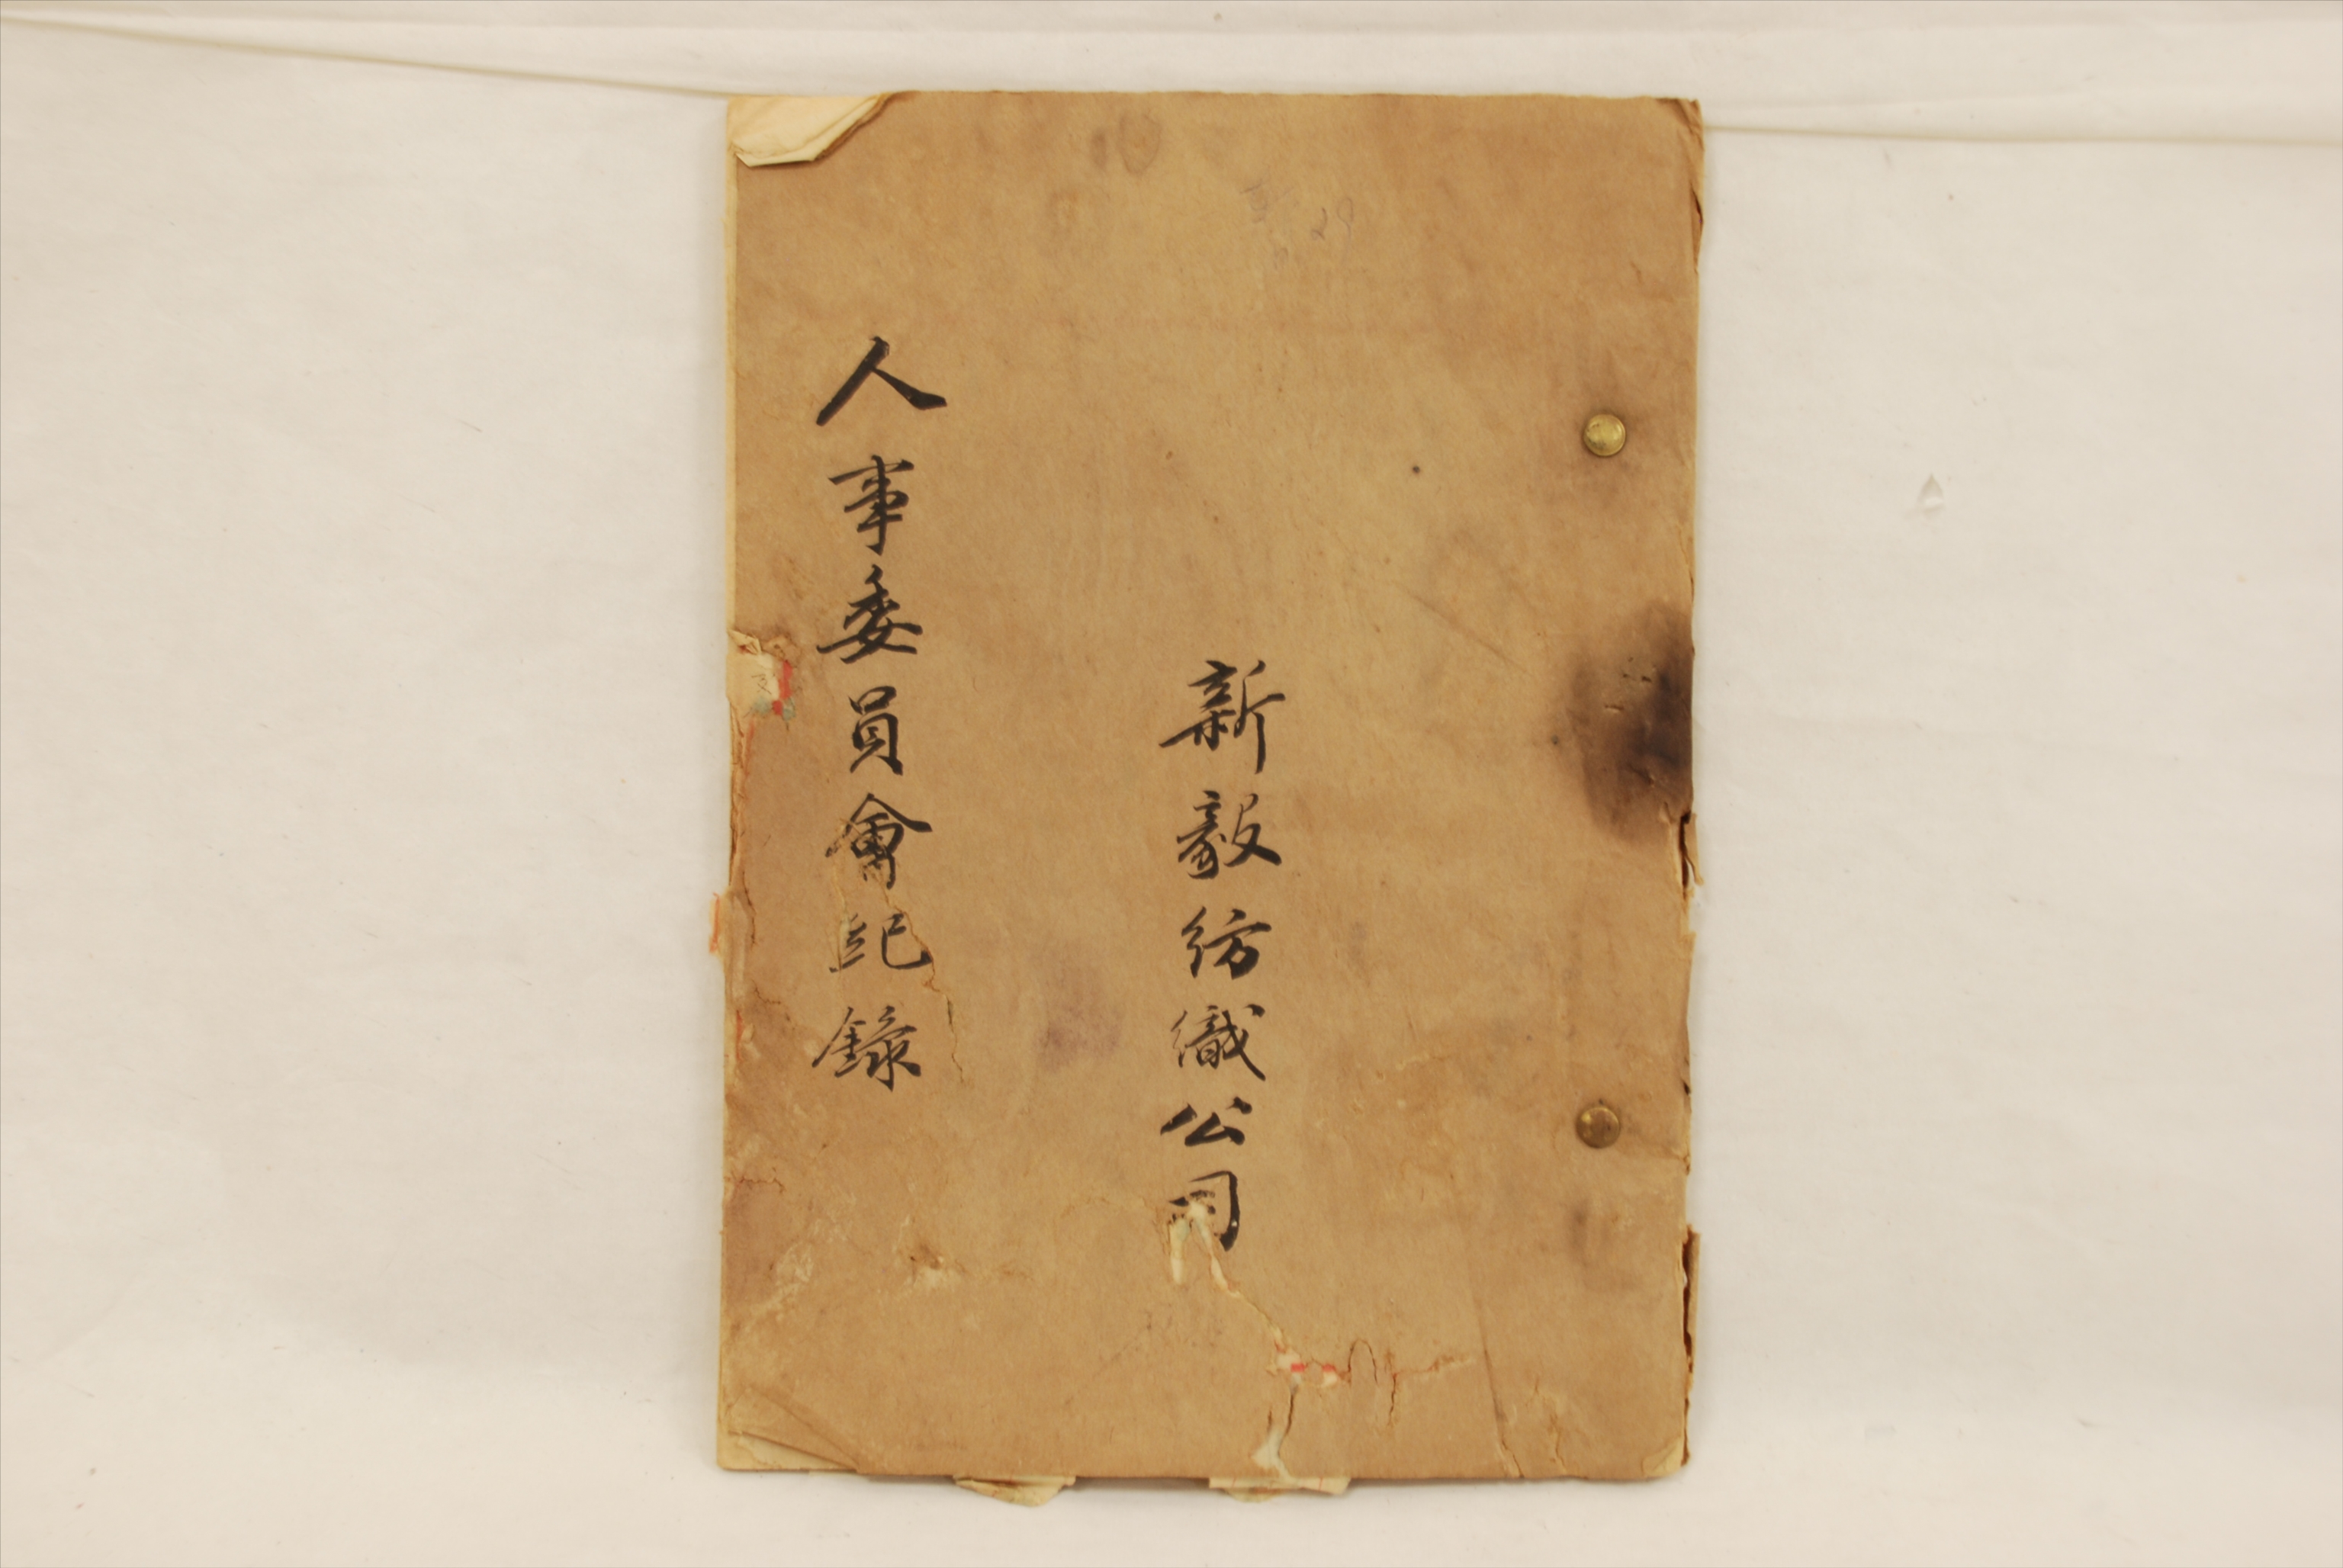 新毅紡織公司
人事委員會紀錄
29